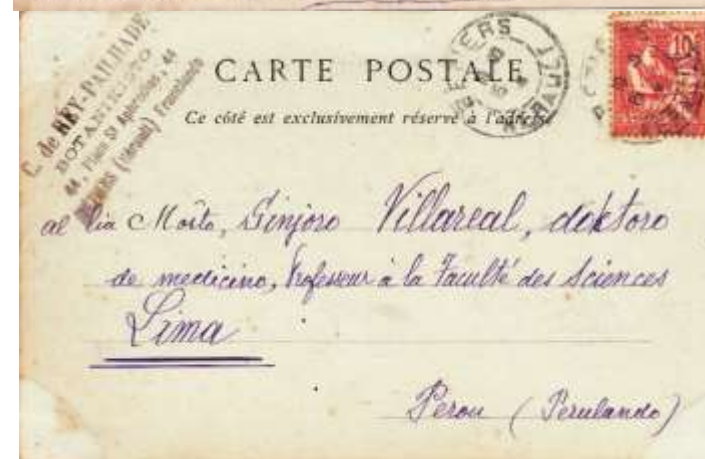 C. de REY-PAILHADE
BOTANIKISTO
44, Place St Aphrodise, 44
BÉZIERS (Hérault) Franclando
CARTE POSTALE
Ce côté est exclusivement réservé à l'adresse
BÉZIERS
HÉRAULT
10
al lia Moŝto, Sinjoro Villareal, doktoro
de medicino, Professeur à la Faculté des Sciences
Lima
Perou (Perulando)